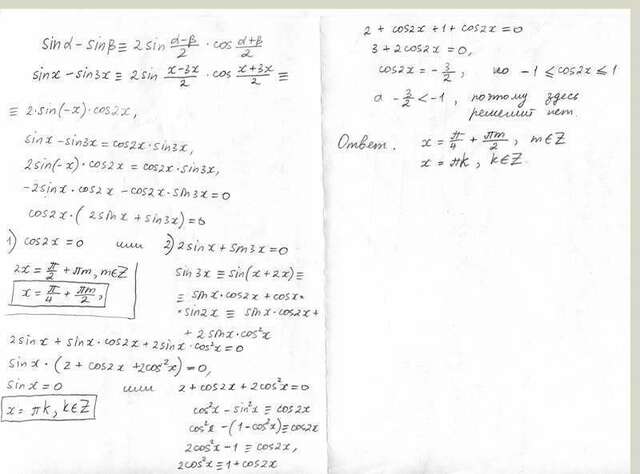 sinα - sinβ ≡ 2 sin (α-β)/2 · cos (α+β)/2
sinx - sin3x ≡ 2 sin (x-3x)/2 · cos (x+3x)/2 ≡
≡ 2·sin(-x)·cos2x,
sinx - sin3x = cos2x·sin3x,
2sin(-x)·cos2x = cos2x·sin3x,
-2sinx·cos2x - cos2x·sin3x = 0
cos2x·(2sinx + sin3x) = 0
1) cos2x = 0 или 2) 2sinx + sin3x = 0
2x = π/2 + πm, m∈Z
x = π/4 + πm/2,
sin3x ≡ sin(x+2x) ≡
≡ sinx·cos2x + cosx·
·sin2x ≡ sinx·cos2x +
+ 2sinx·cos²x
2sinx + sinx·cos2x + 2sinx·cos²x = 0
sinx·(2 + cos2x + 2cos²x) = 0,
sinx = 0 или 2 + cos2x + 2cos²x = 0
x = πk, k∈Z
cos²x - sin²x ≡ cos2x
cos²x - (1-cos²x) ≡ cos2x
2cos²x - 1 ≡ cos2x,
2cos²x ≡ 1 + cos2x
2 + cos2x + 1 + cos2x = 0
3 + 2cos2x = 0,
cos2x = -3/2, но -1 ≤ cos2x ≤ 1
а -3/2 < -1, поэтому здесь
решений нет.
Ответ. x = π/4 + πm/2, m∈Z
x = πk, k∈Z.